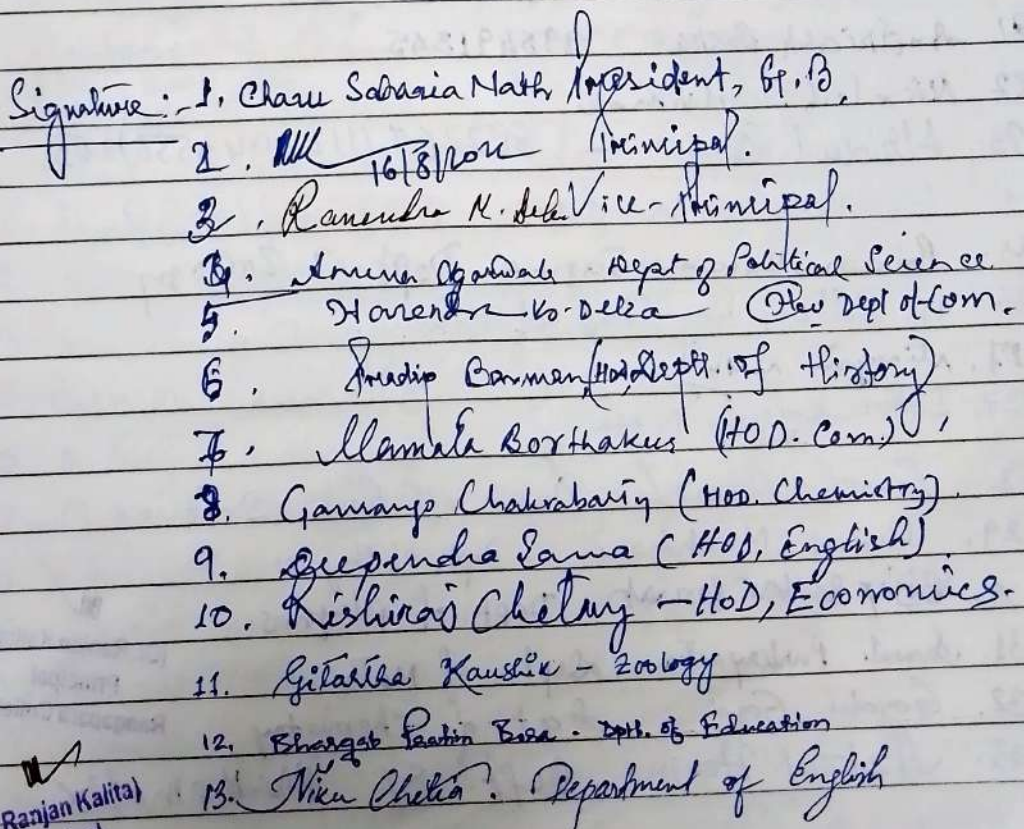 Signature :- 1. Charu Saharia Nath President, G.B.
2. 16/8/2022 Principal.
3. Ranendra N. Deka Vice-Principal.
4. Dept of Political Science
5. Harendra Kr. Deka Dept of Com.
6. Pradip Barman (HOD, Deptt. of History)
7. Mamata Borthakur (HOD. Com.),
8. Chakrabarty (HOD. Chemistry).
9. Dependra Sarma (HOD, English).
10. Rishiraj Chetry - HoD, Economics.
11. Gitartha Kaushik - Zoology
12. Bhargab Bora - Dptt. of Education
13. Niku Chetia. Department of English
Ranjan Kalita)